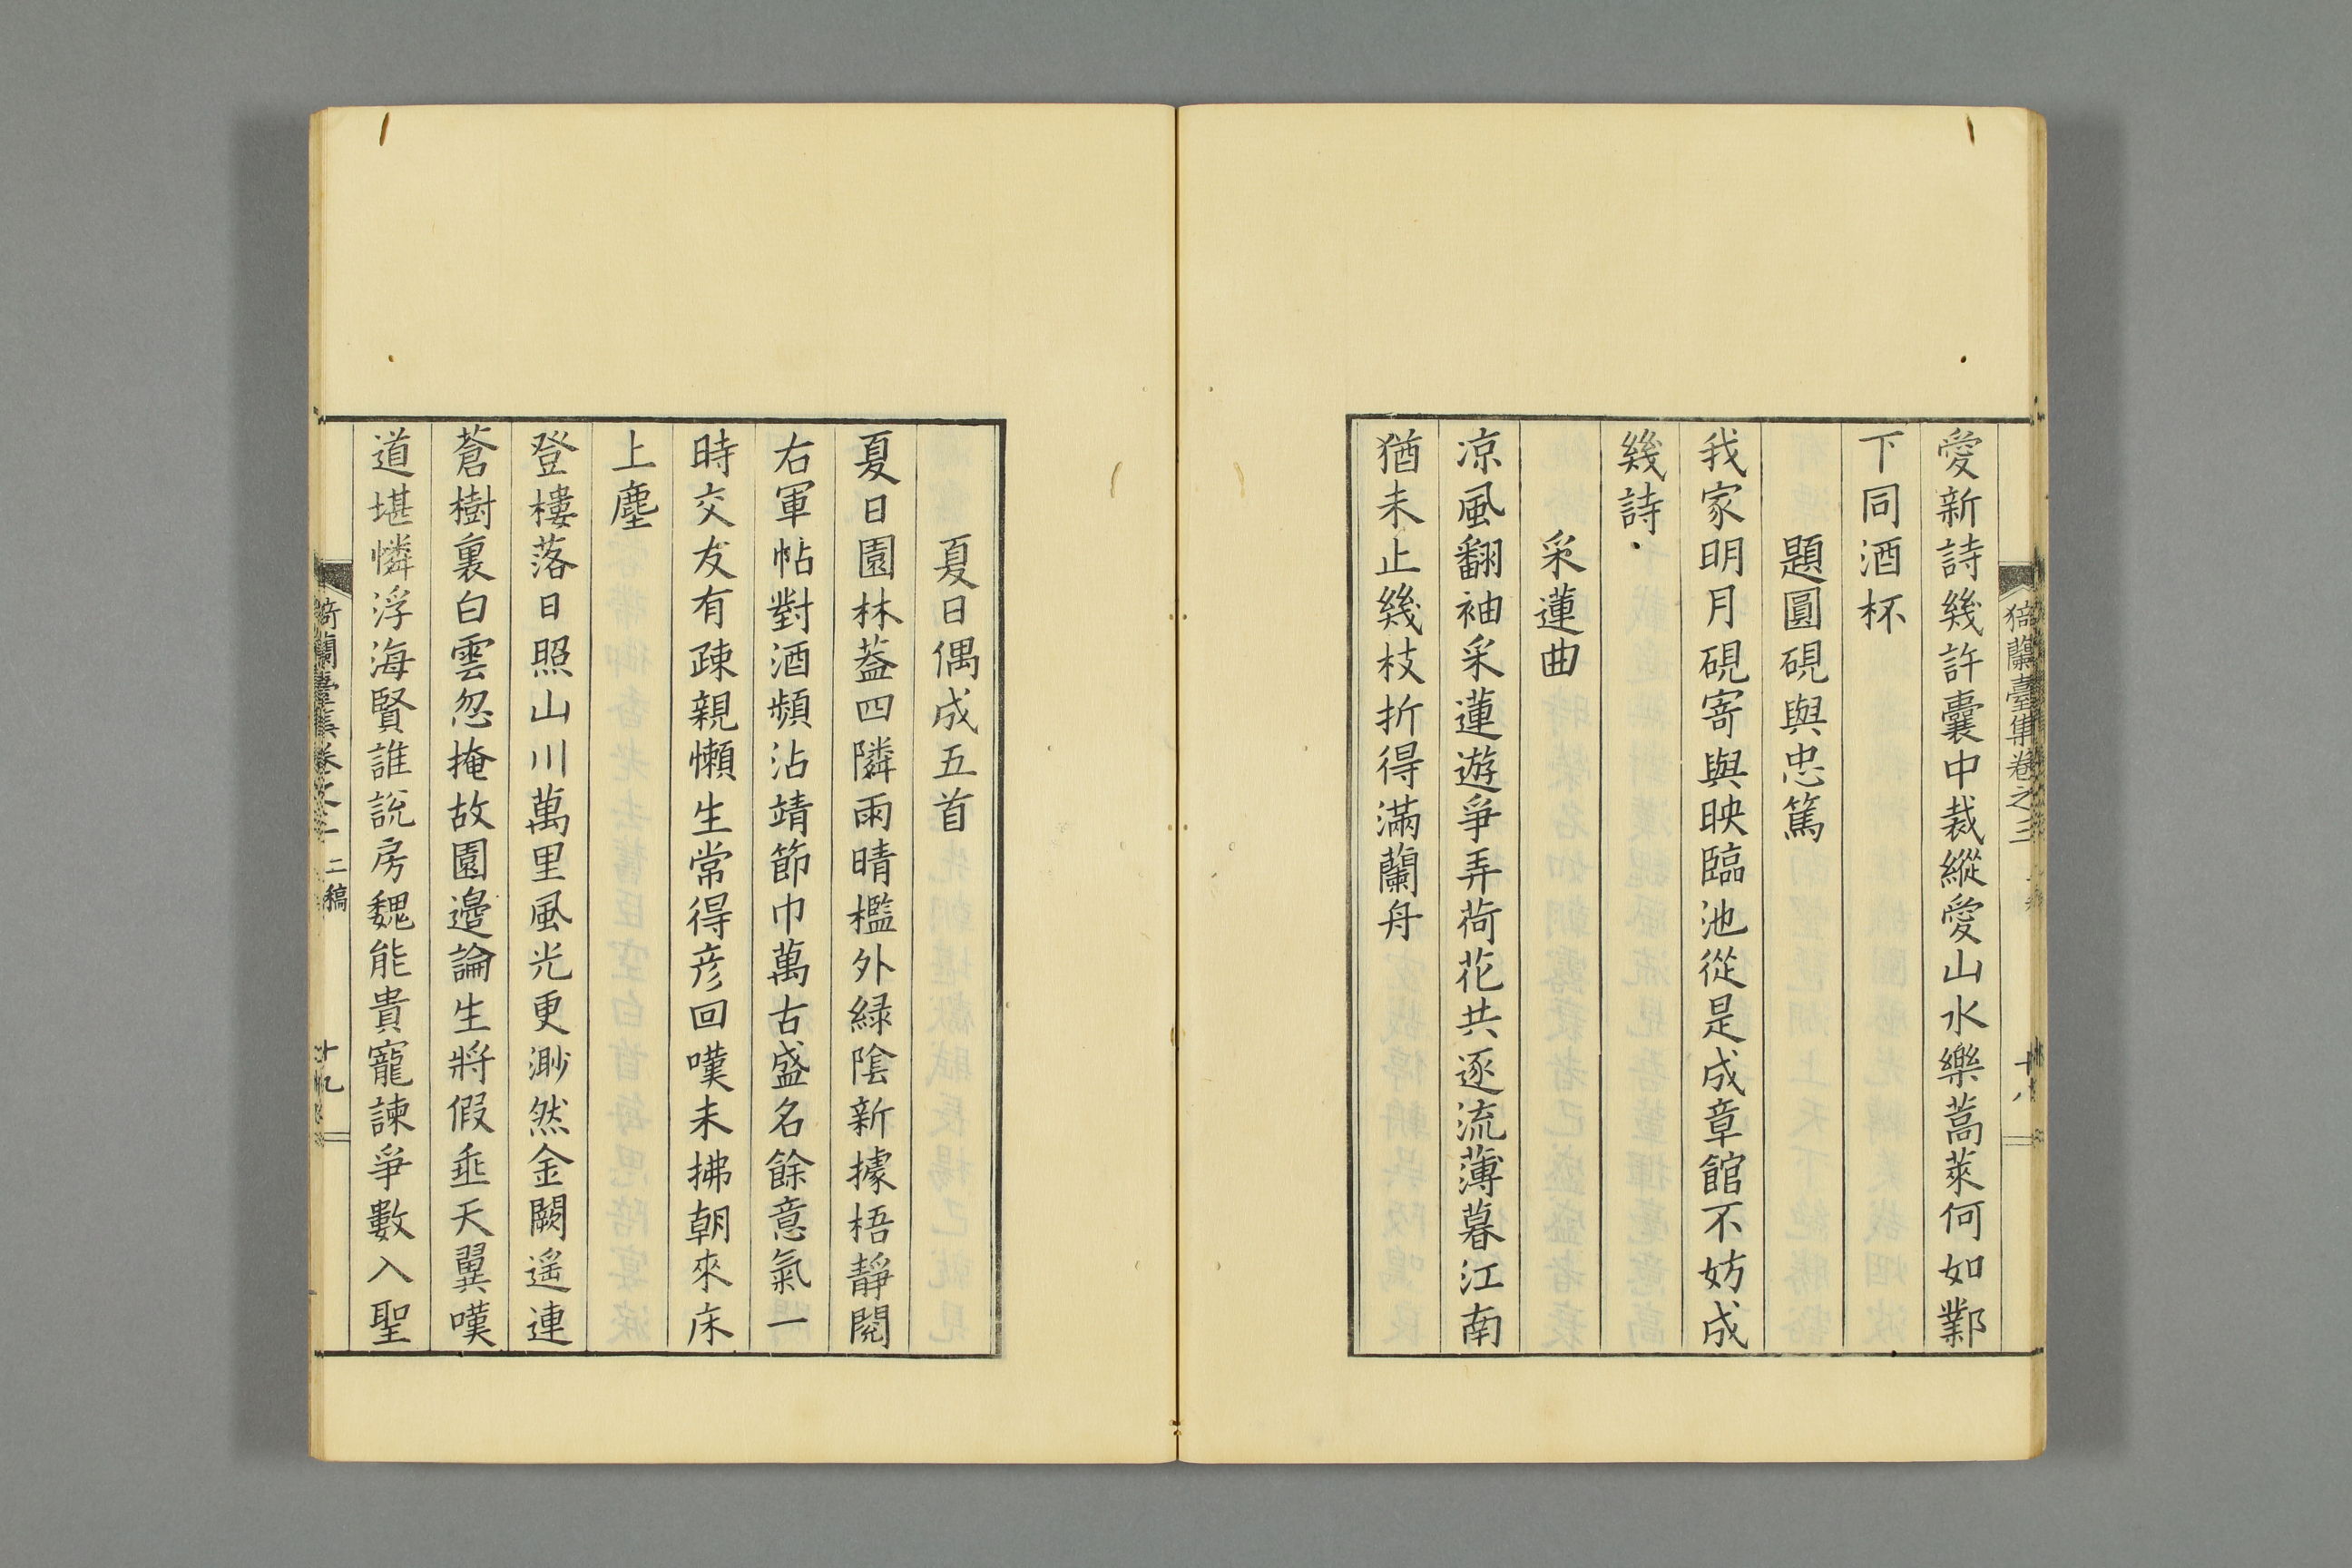 猗蘭臺集卷之三
十八
愛新詩幾許囊中裁縱愛山水樂蒿萊何如鄴
下同酒杯
題圓硯與忠篤
我家明月硯寄與映臨池從是成章館不妨成
幾詩
采蓮曲
凉風翻袖采蓮遊爭弄荷花共逐流薄暮江南
猶未止幾枝折得滿蘭舟
夏日偶成五首
夏日園林葢四隣雨晴檻外緑陰新據梧靜閱
右軍帖對酒頻沾靖節巾萬古盛名餘意氣一
時交友有疎親懶生常得彦回嘆未拂朝來床
上塵
登樓落日照山川萬里風光更渺然金闕遙連
蒼樹裏白雲忽掩故園邉論生將假垂天翼嘆
道堪憐浮海賢誰說房魏能貴寵諫爭數入聖
猗蘭臺集卷之三 二稿
十九